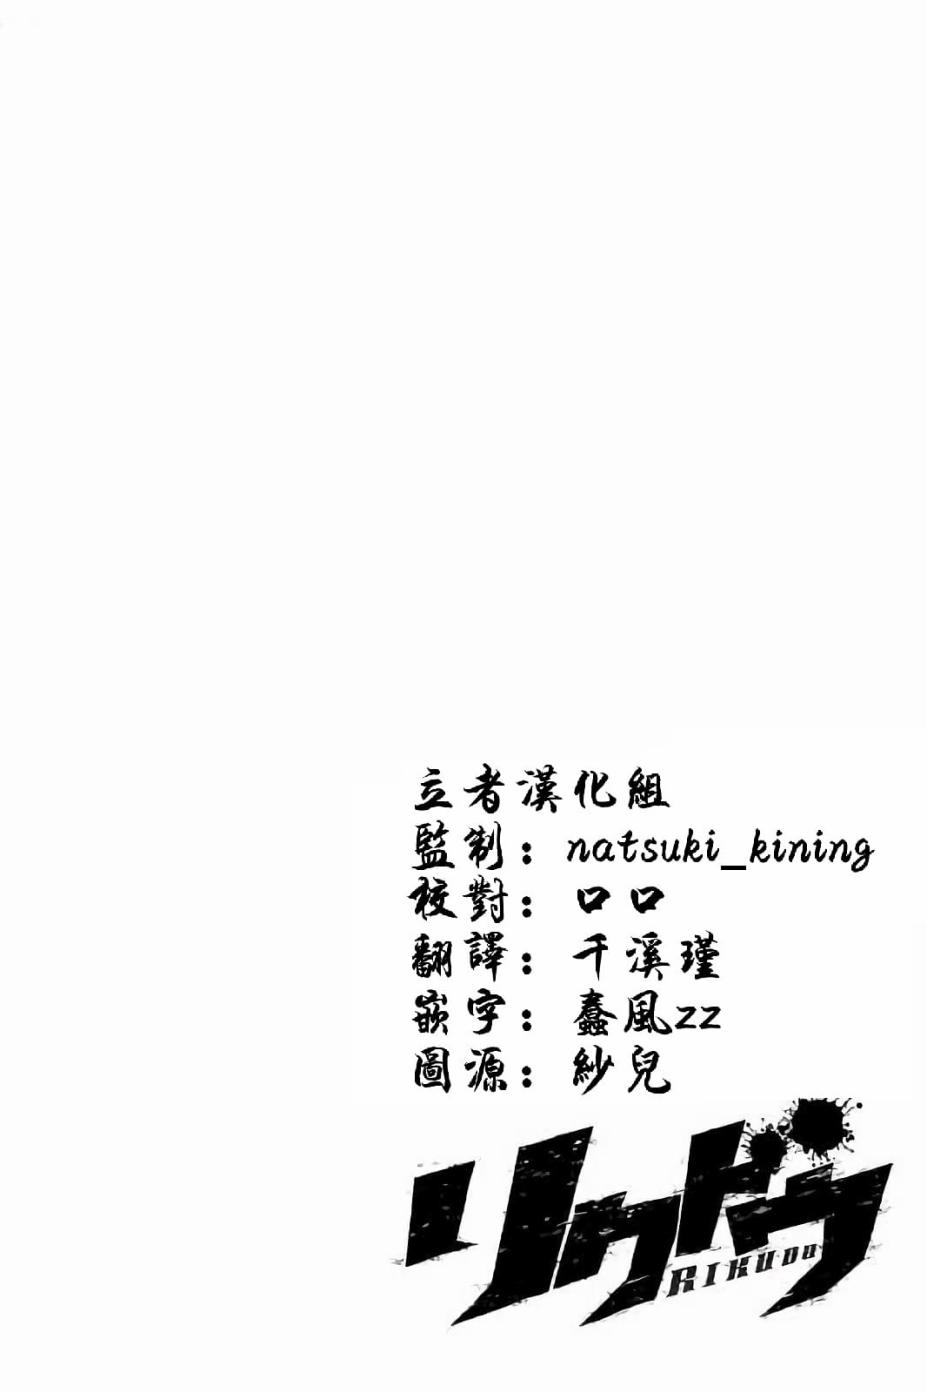 立者漢化組
監制：natsuki_kining
校對：口口
翻譯：千溪瑾
嵌字：蠢風zz
圖源：紗兒
リクドウ
RIKUDOU